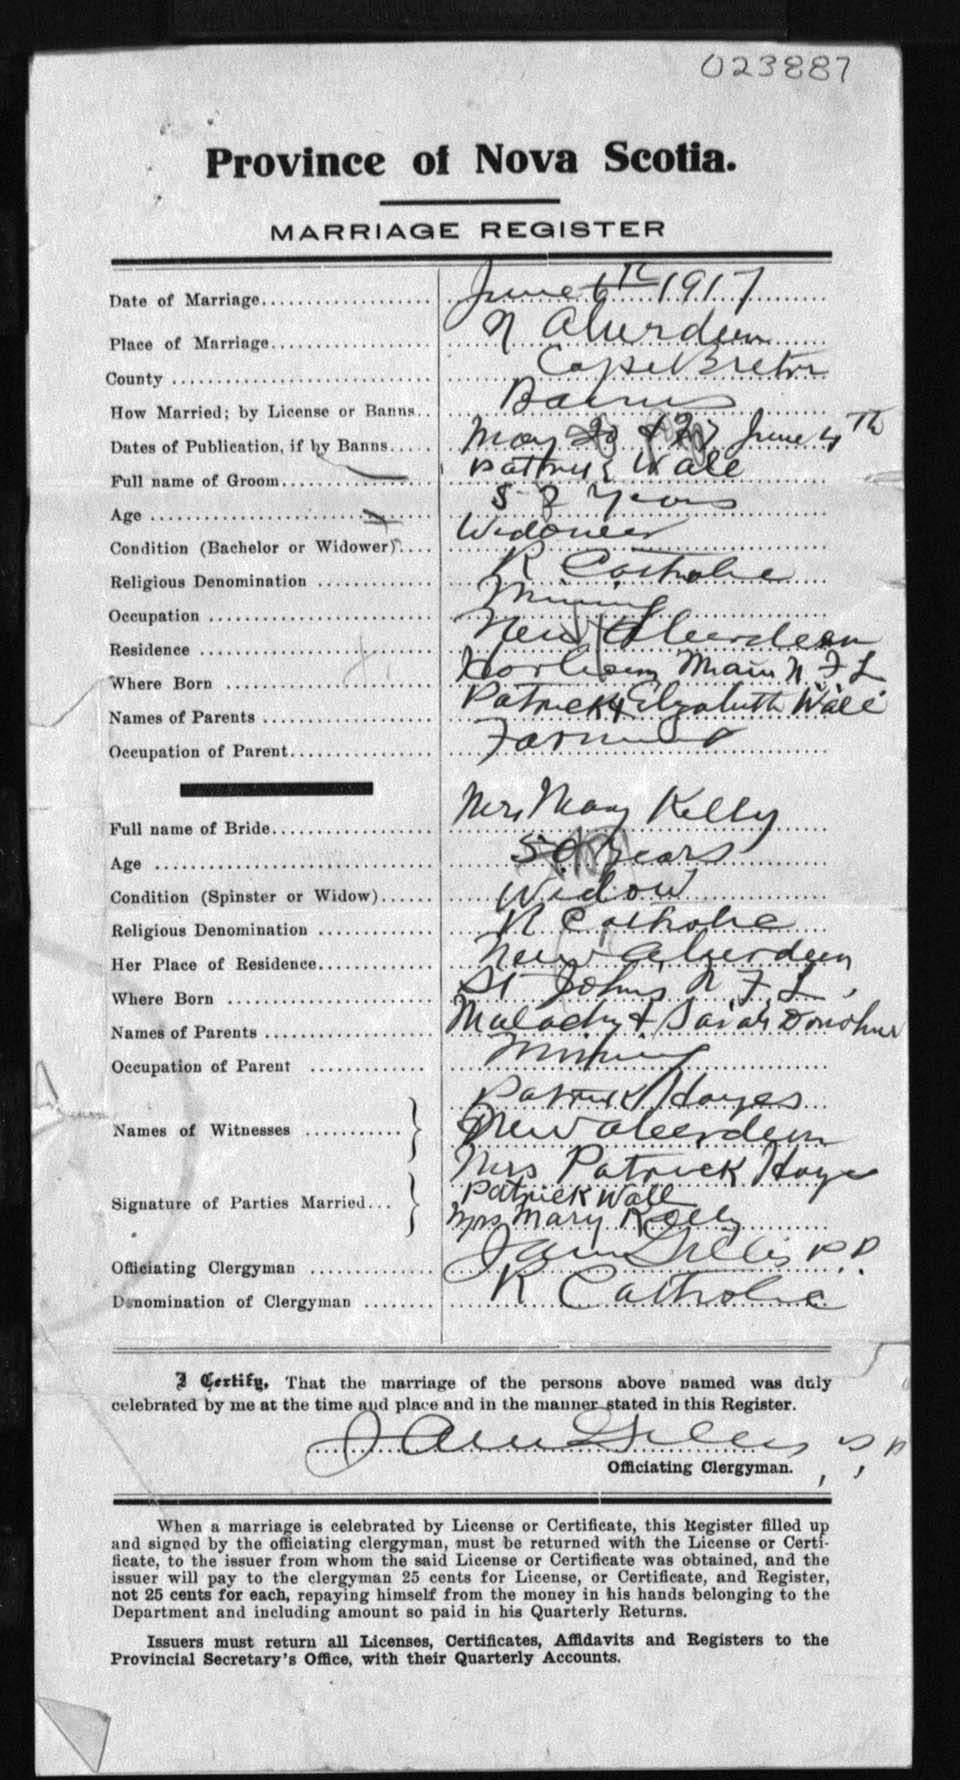 023887
Province of Nova Scotia.
MARRIAGE REGISTER
Date of Marriage June 6th 1917
Place of Marriage N Aberdeen
County Cape Breton
How Married; by License or Banns Banns
Dates of Publication, if by Banns May 20 & 27 June 4th
Full name of Groom Patrick Wall
Age 58 Years
Condition (Bachelor or Widower) Widower
Religious Denomination R Catholic
Occupation Mining
Residence New Aberdeen
Where Born Main N. F. L
Names of Parents Patrick & Elizabeth Wall
Occupation of Parent Farmer
Full name of Bride Mrs Mary Kelly
Age 50 Years
Condition (Spinster or Widow) Widow
Religious Denomination R Catholic
Her Place of Residence New Aberdeen
Where Born St Johns N F L,
Names of Parents Malachy & Sarah
Occupation of Parent Mining
Names of Witnesses Patrick Hayes
New Aberdeen
Mrs Patrick Hayes
Signature of Parties Married Patrick Wall
Mrs Mary Kelly
Officiating Clergyman Gillis P.P.
Denomination of Clergyman R Catholic
I Certify, That the marriage of the persons above named was duly
celebrated by me at the time and place and in the manner stated in this Register.
Gillis P P
Officiating Clergyman.
When a marriage is celebrated by License or Certificate, this Register filled up
and signed by the officiating clergyman, must be returned with the License or Certi-
ficate, to the issuer from whom the said License or Certificate was obtained, and the
issuer will pay to the clergyman 25 cents for License, or Certificate, and Register,
not 25 cents for each, repaying himself from the money in his hands belonging to the
Department and including amount so paid in his Quarterly Returns.
Issuers must return all Licenses, Certificates, Affidavits and Registers to the
Provincial Secretary's Office, with their Quarterly Accounts.